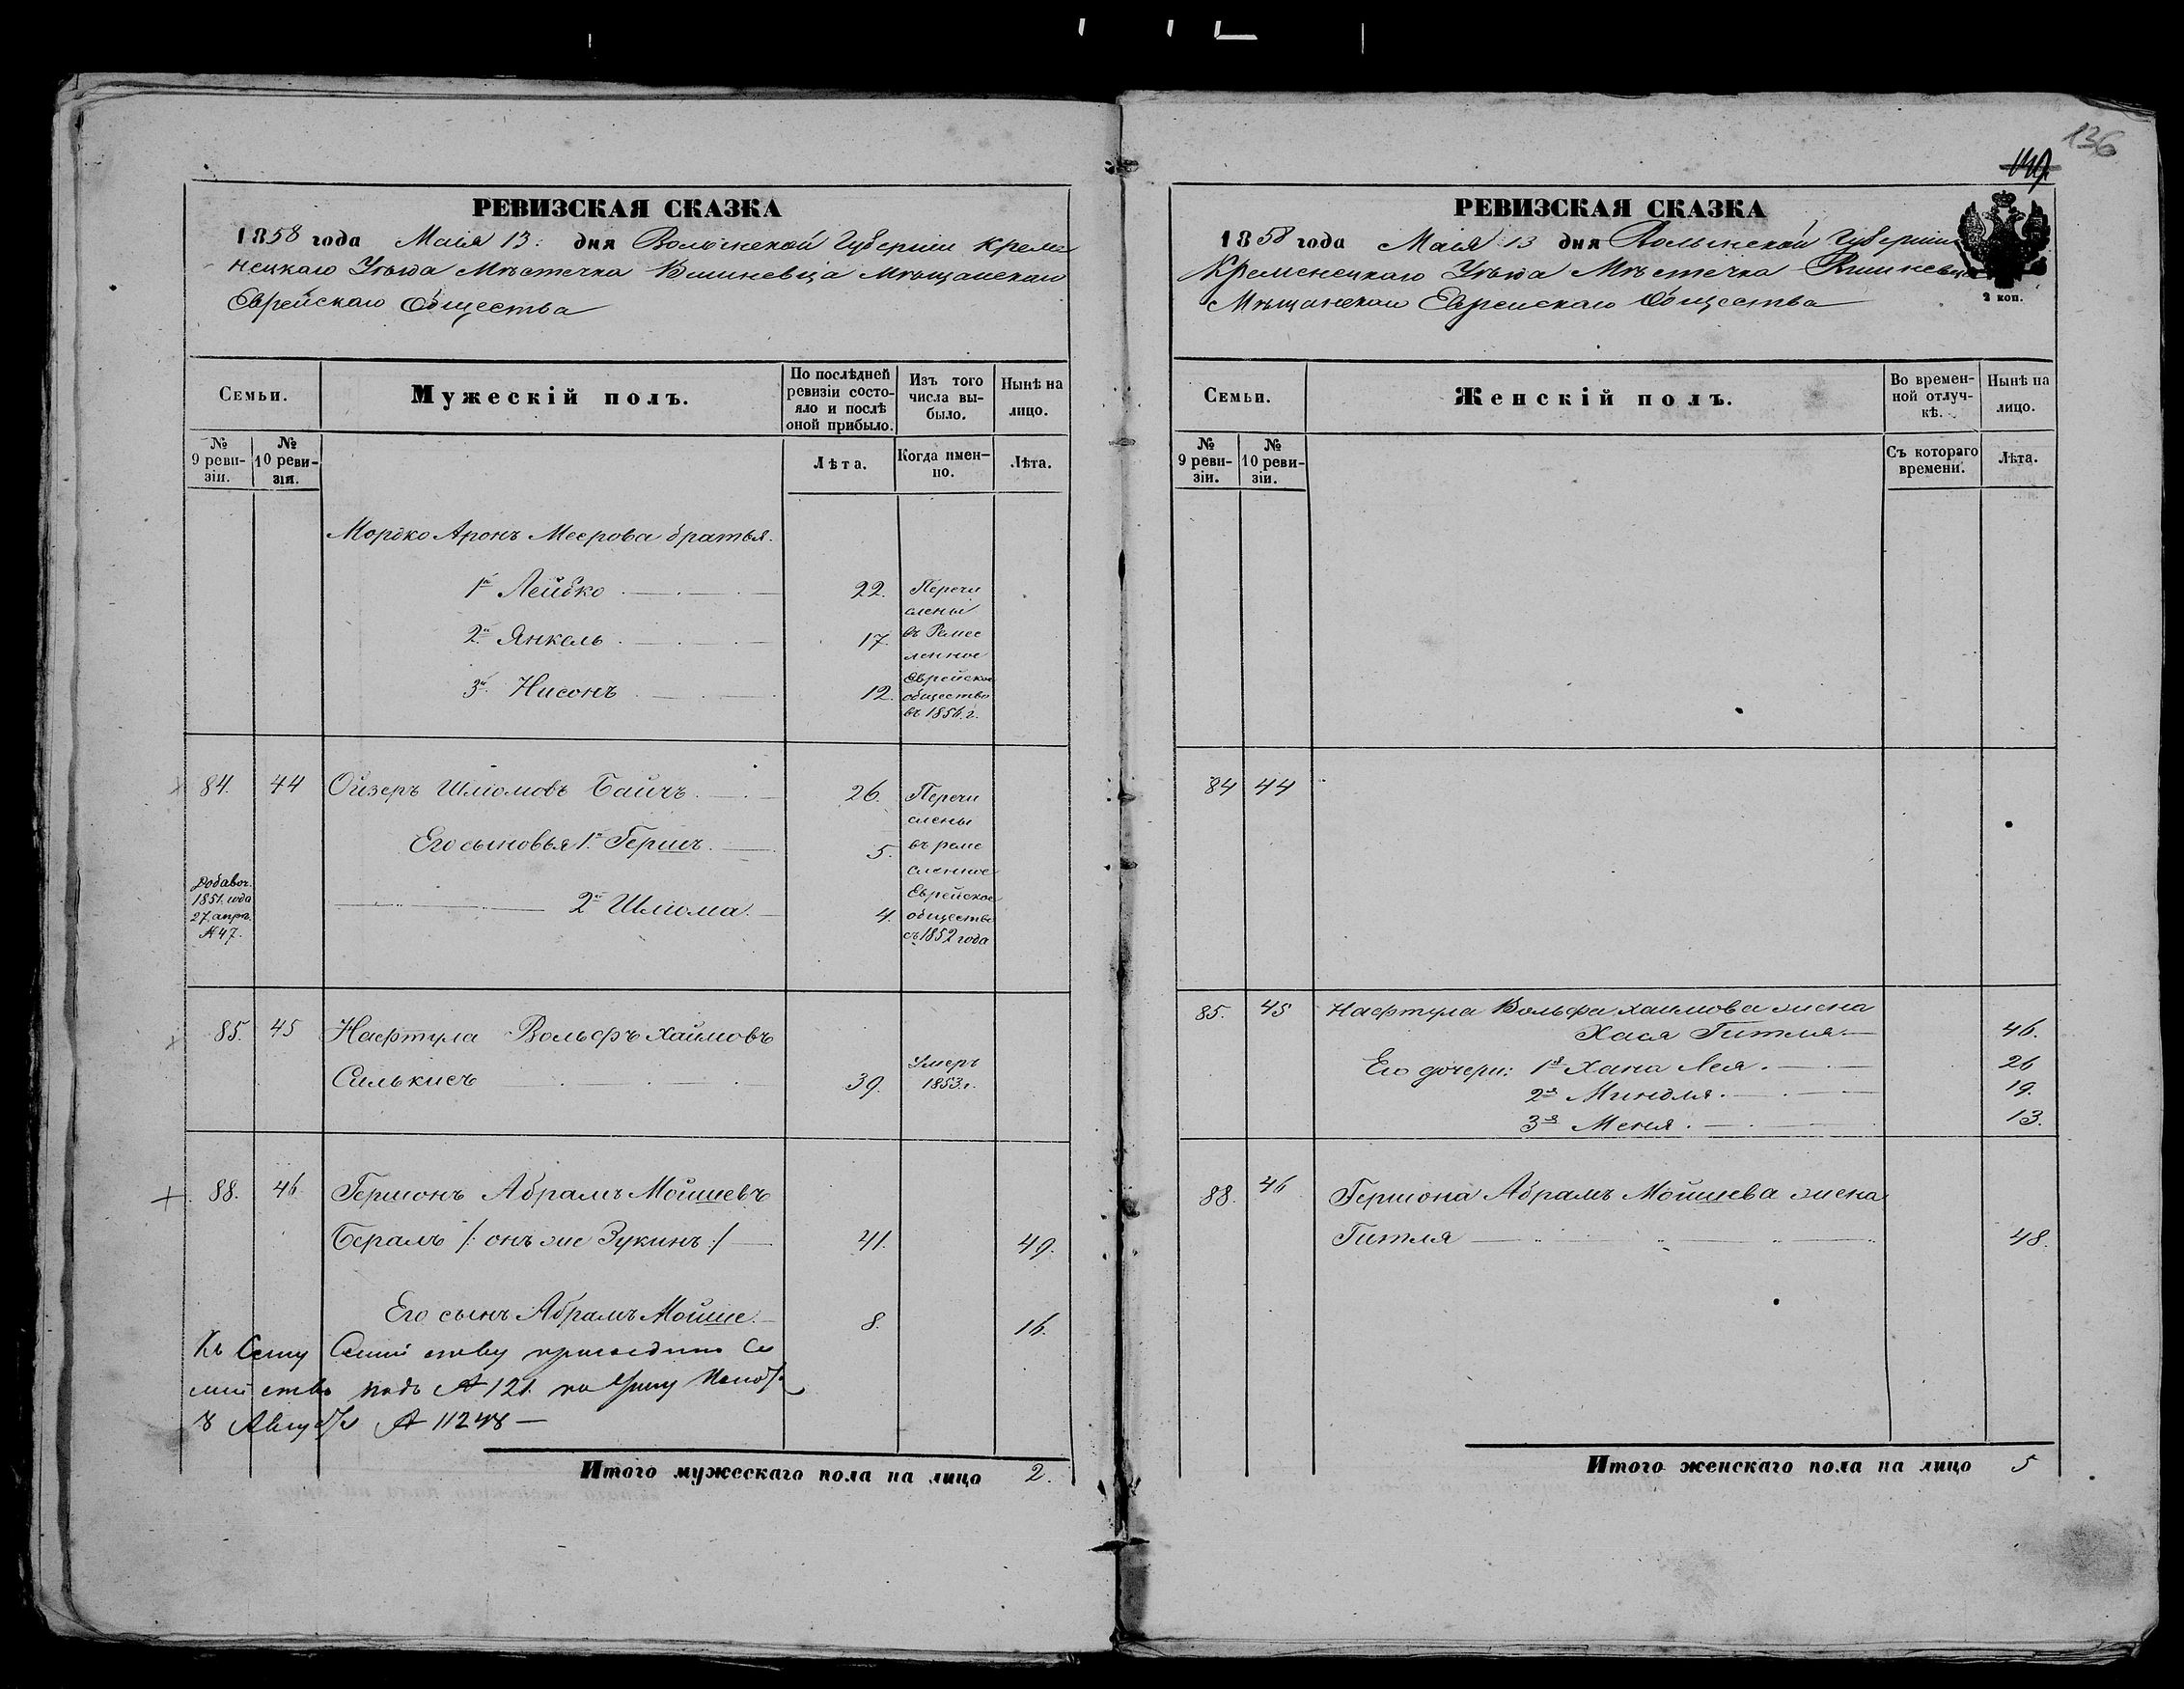 136
РЕВИЗСКАЯ СКАЗКА
1858 года Маія 13: дня Волынской Губерніи Креме
нецкаго Уѣзда Мѣстечка Вишневца Мѣщанскаго
Еврейскаго Общества
Семьи.
Мужескій полъ.
По послѣдней
ревизіи состо-
яло и послѣ
оной прибыло.
Изъ того
числа вы-
было.
Нынѣ на
лицо.
№
9 реви-
зіи.
№
10 реви-
зія.
Лѣта.
Когда имен-
но.
Лѣта.
Мордко Аронъ Меерова братья.
1й Лейбко 22. Перечи
слены
2й Янкель 17. въ Ремес
ленное
Еврейское
3й Нисонъ 12. общество
въ 1856 г.
84. 44 Ойзеръ Шліомовъ Байчъ 26. Перечи
слены
Его сыновья 1й Гершъ 5. въ реме
сленное
Добавоч.
1851. года
27. апрѣ.
№ 47.
2й Шліома 4.
Еврейское
общество
съ 1852 года
85. 45 Нафтула Вольфъ Хаимовъ
Силькисъ 39. Умеръ
1853 г.
88. 46 Гершонъ Абрамъ Мойшевъ
Бералъ /: онъ же Зукинъ :/ 41. 49.
Его сынъ Абрамъ Мойше. 8. 16.
Къ Сему Семейству присоедине Се
мейство подъ № 121. по
8 Августа № 11248 —
Итого мужескаго пола на лицо 2.
РЕВИЗСКАЯ СКАЗКА
1858 года Маія 13 дня Волынской Губерніи
Кременецкаго Уѣзда Мѣстечка Вишневца
Мѣщанскаго Еврейскаго Общества
2 коп.
Семьи.
Женскій полъ.
Во времен-
ной отлуч-
кѣ.
Нынѣ на
лицо.
№
9 реви-
зіи.
№
10 реви-
зіи.
Съ котораго
времени.
Лѣта.
84 44
85. 45 Нафтула Вольфа Хаимова жена
Хася Гитля 46.
Его дочери: 1я Хана Лея. 26
2я Миндля. 19.
3я Меня. 13.
88. 46 Гершона Абрамъ Мойшева жена
Гитля 48.
Итого женскаго пола на лицо 5